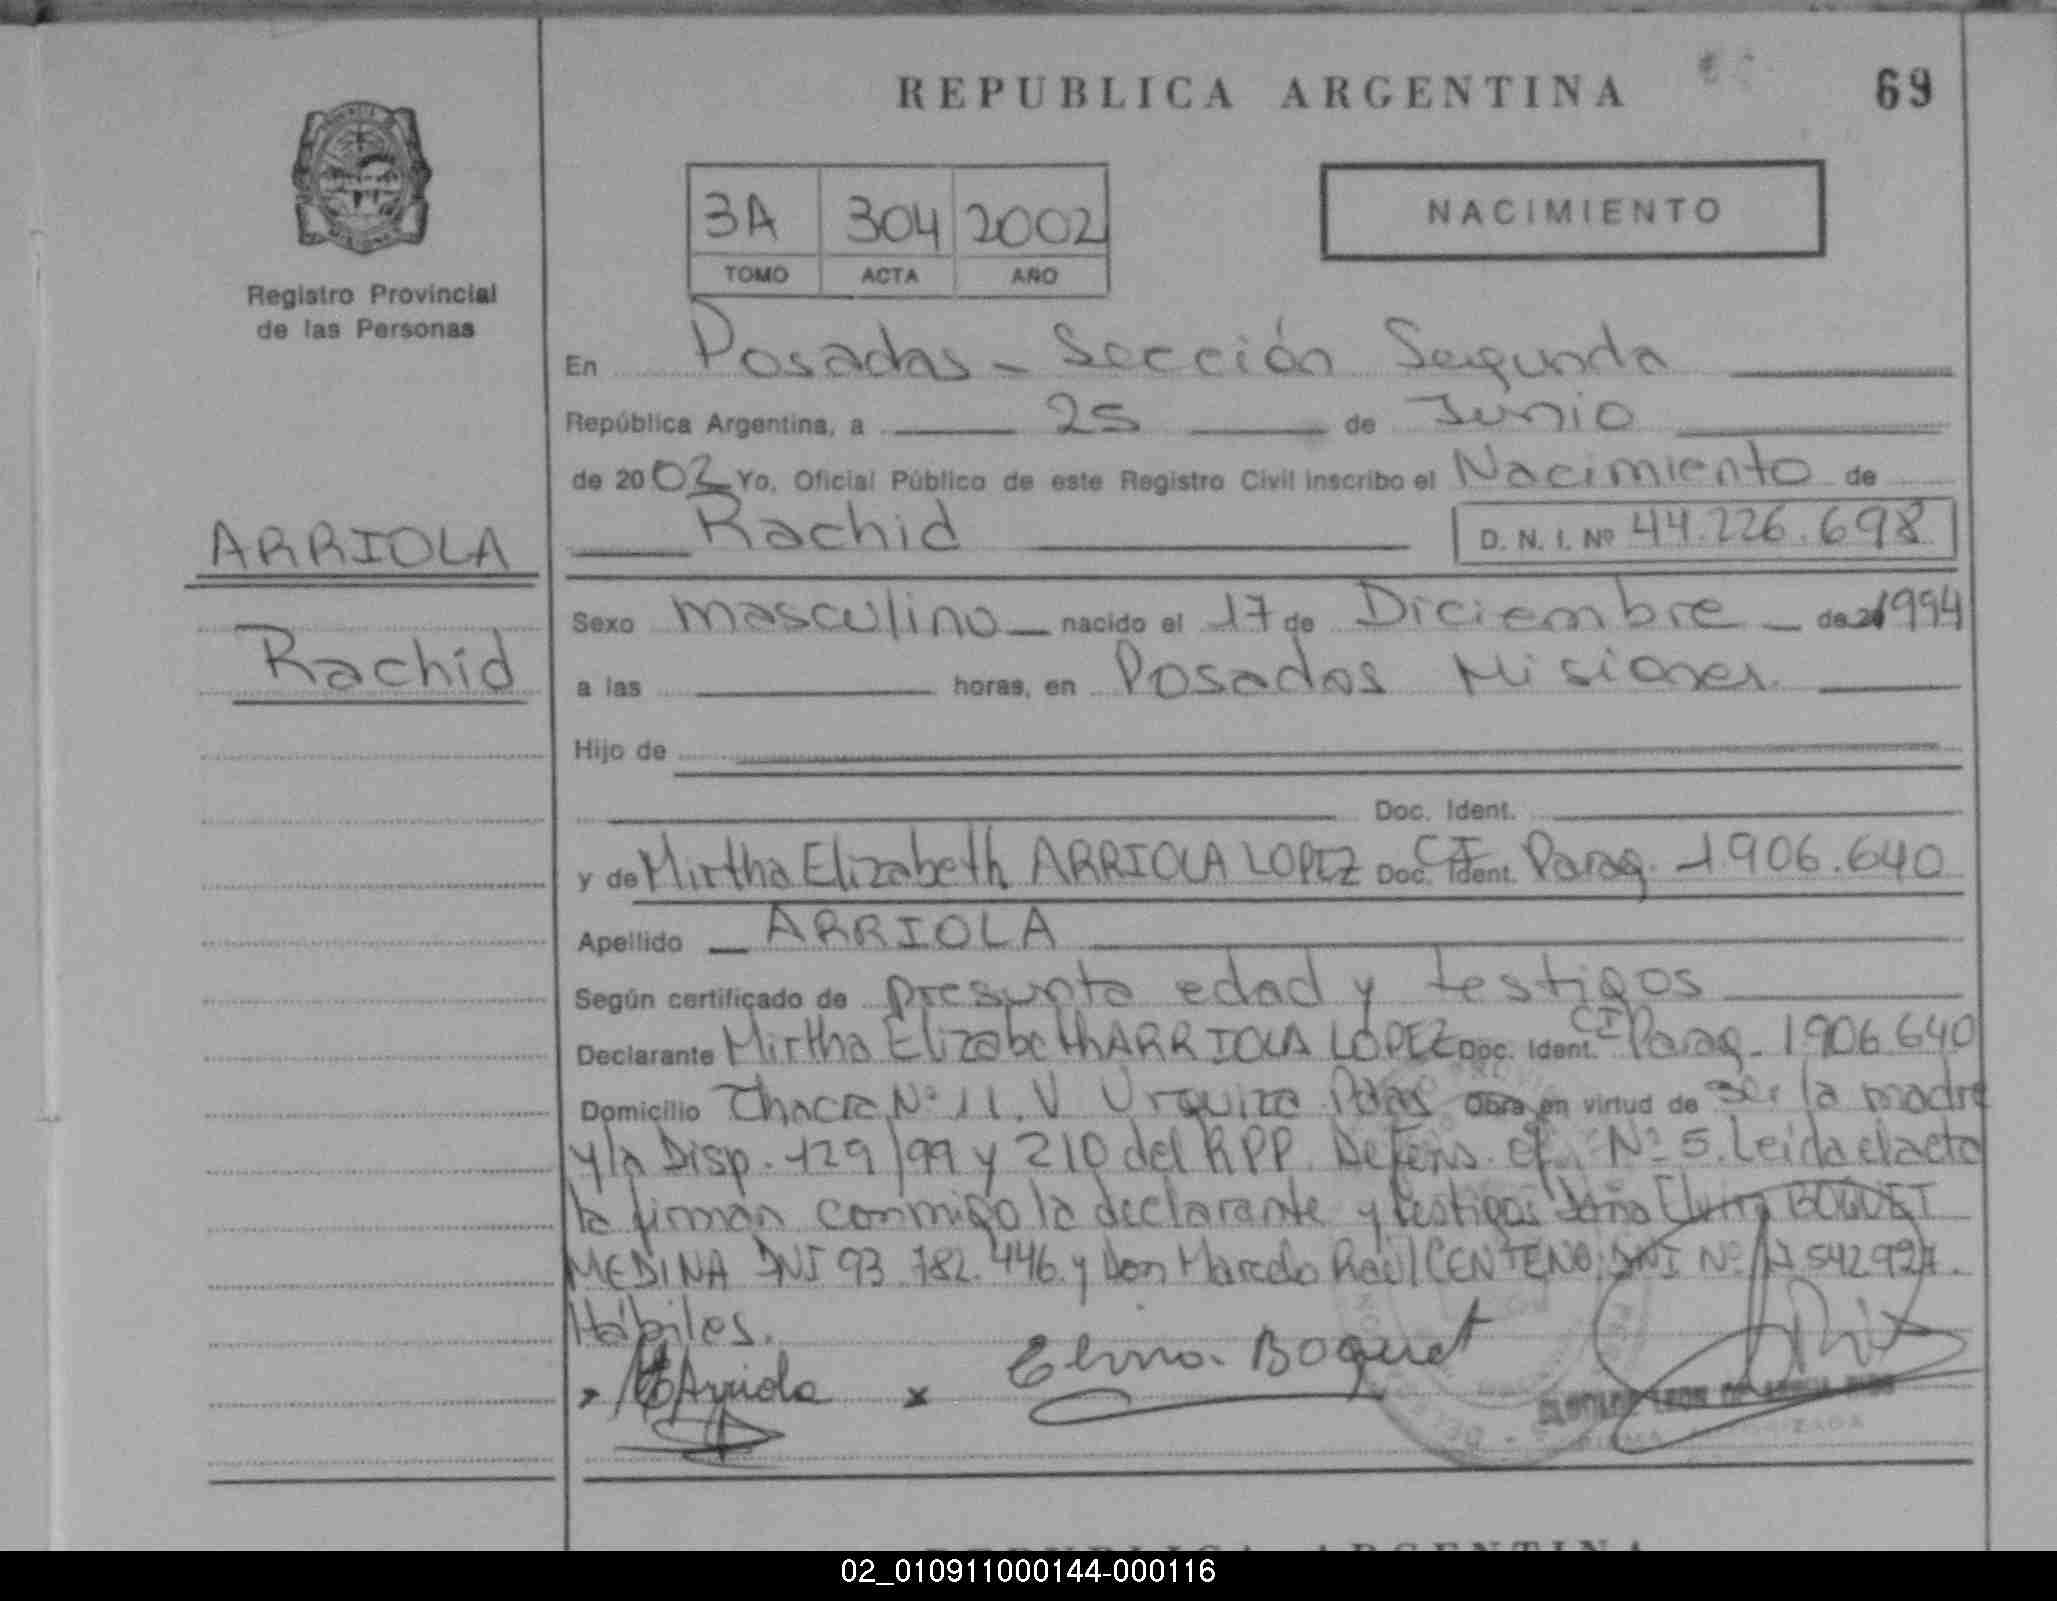 REPUBLICA ARGENTINA
69
3A 304 2002
TOMO ACTA AÑO
NACIMIENTO
Registro Provincial
de las Personas
ARRIOLA
Rachid
En Posadas - Sección Segunda
República Argentina, a 25 de Junio
de 2002 Yo, Oficial Público de este Registro Civil inscribo el Nacimiento de
Rachid D. N. I. Nº 44.226.698
Sexo masculino nacido el 17 de Diciembre de 1994
a las horas, en Posadas Misiones.
Hijo de
Doc. Ident.
y de Mirtha Elizabeth ARRIOLA LOPEZ Doc. Ident. CI Parag. 1906.640
Apellido ARRIOLA
Según certificado de presunta edad y testigos
Declarante Mirtha Elizabeth ARRIOLA LOPEZ Doc. Ident. CI Parag. 1906 640
Domicilio Chacra Nº 11. V. Urquiza Pdas Obra en virtud de ser la madre
y la Disp. 129/99 y 210 del RPP. Defens. of. Nº 5. Leida el acta
la firman conmigo la declarante y testigos Doña BOGUET
MEDINA DNI 93 782.446 y Don Marcelo Raúl CENTENO, DNI Nº 542927.
Hábiles.
Arriola x Boquet
REPUBLICA ARGENTINA
02_010911000144-000116